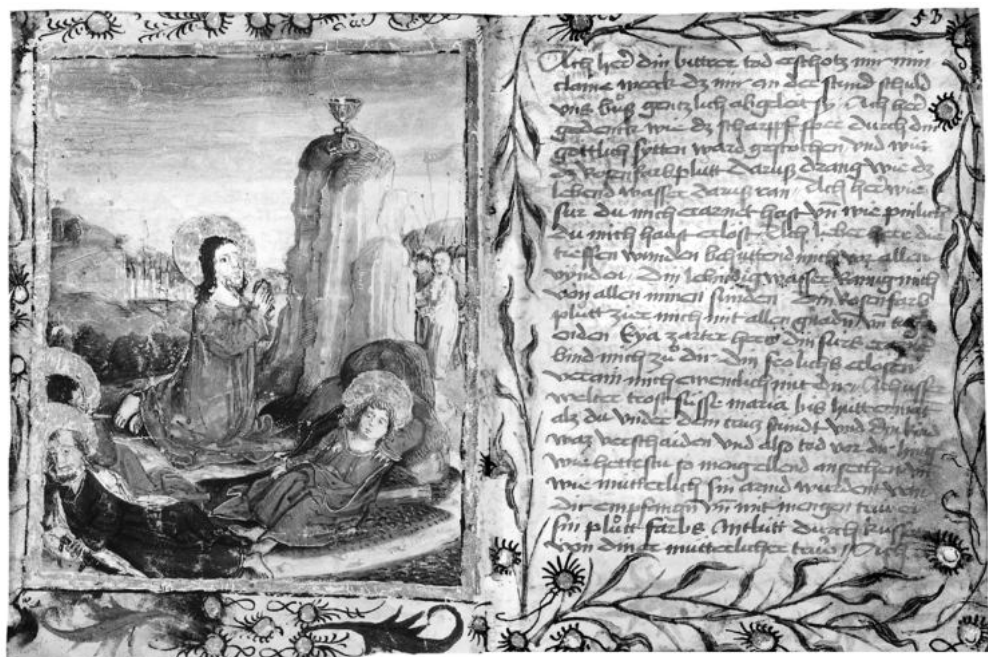 53
Ach her din bittrer tod erschotz mir min
claine werck dz mir an der stund schuld
vnd bůß gentzlich abgeleit sy Ach her
gedenck wie dz scharpff sper durch din
gottlich sytten ward gestochen vnd wie
dz rosenfarb plůtt daruß drang wie dz
lebend wasser daruß ran Ach her wie
sur du mich erarnet hast vn wie pinlich
du mich haust erlost Ach lieber her din
tieffen wunden behuttend mich vor allen
vynden Din lebendig wasser rainig mich
von allen minen sunden Din rosenfarb
plůtt zier mich mit allen gnaden vn
Eya zarter here din
bind mich zů dir din frolichs erlosen
verain mich ewenclich mit dir Ach
welter trost sůsse maria bis
alz du vnder dem crutz stundt vnd din kind
waz verschaiden vnd also tod vor dir hing
wie hettestu so meng ellend ansechen
wie mutterlich sin armd wurdent von
dir empfangen vn mit mengen
sin plůtt farbs Antlutt durch kusset
von diner mutterlicher truw Ach